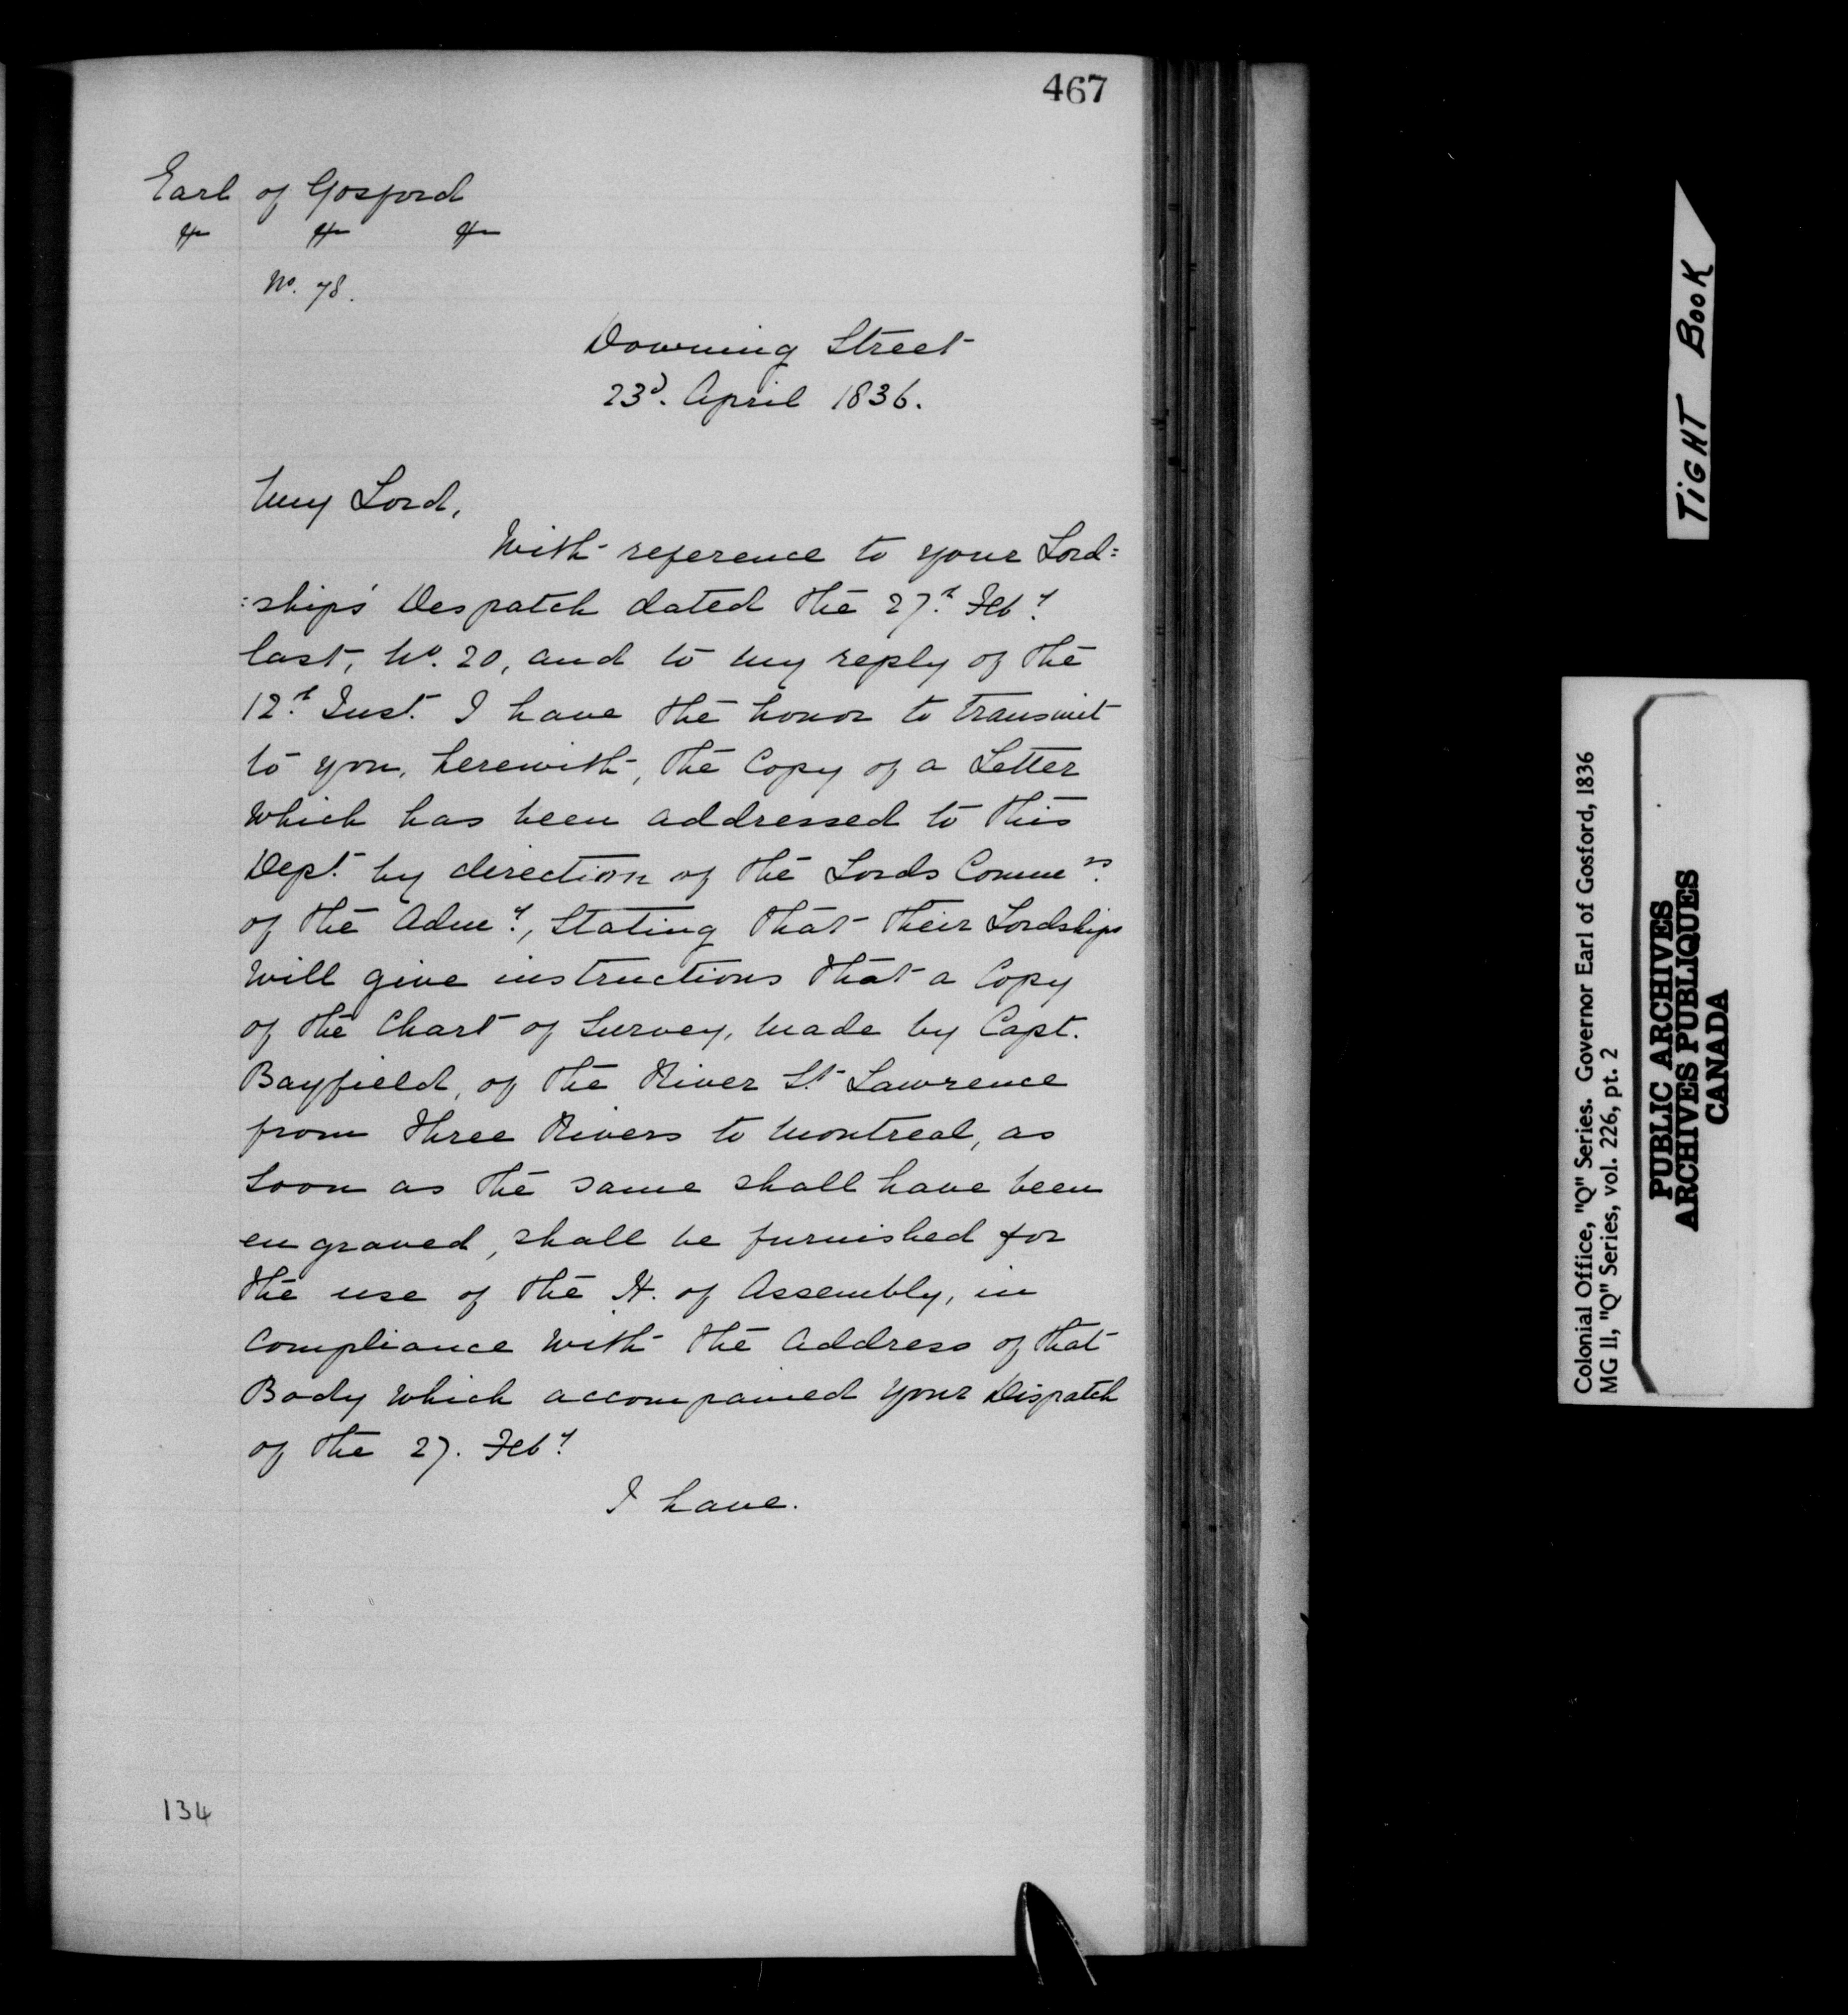 467
Earl of Gosford
&c &c &c
No. 78.
Downing Street
23d. April 1836.
My Lord,
With reference to your Lord=
=ship's Despatch dated the 27th Feby.
last, No. 20, and to my reply of the
12th Inst. I have the honor to transmit
to you, herewith, the Copy of a Letter
which has been addressed to this
Dept. by direction of the Lords Commrs.
of the Admy., Stating that their Lordships
will give instructions that a Copy
of the Chart of Survey, made by Capt.
Bayfield, of the River St. Lawrence
from Three Rivers to Montreal, as
soon as the same shall have been
engraved, shall be furnished for
the use of the H. of Assembly, in
compliance with the Address of that
Body which accompanied your Dispatch
of the 27. Feby.
I have.
134
TIGHT BOOK
Colonial Office, "Q" Series. Governor Earl of Gosford, 1836
MG 11, "Q" Series, vol. 226, pt. 2
PUBLIC ARCHIVES
ARCHIVES PUBLIQUES
CANADA